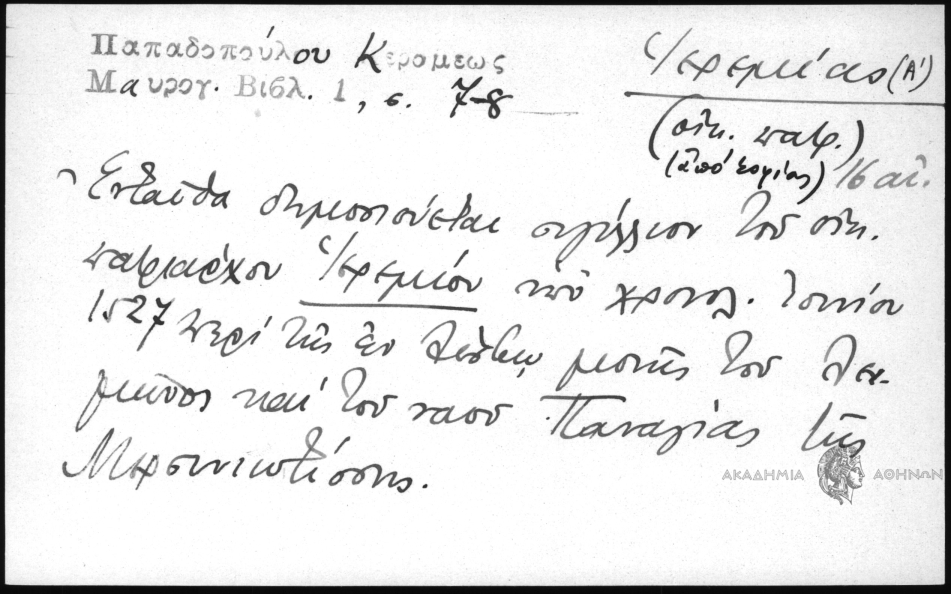 Παπαδοπούλου Κεραμεως
Μαυρογ. Βιβλ. 1, σ. 7-8
Ἱερεμίας (Α')
(οἰκ. πατρ.)
(ἀπό Σοφίας) 16 αἰ.
Ἐνταῦθα δημοσιεύεται σιγίλλιον τοῦ οἰκ.
πατριάρχου Ἱερεμίου ὑπό χρονολ. Ἰουνίου
1527 περί τῆς ἐν Λέσβῳ μονῆς τοῦ Λει-
μῶνος καί τοῦ ναοῦ Παναγίας τῆς
Μυρσινιωτίσσης.
ΑΚΑΔΗΜΙΑ ΑΘΗΝΩΝ